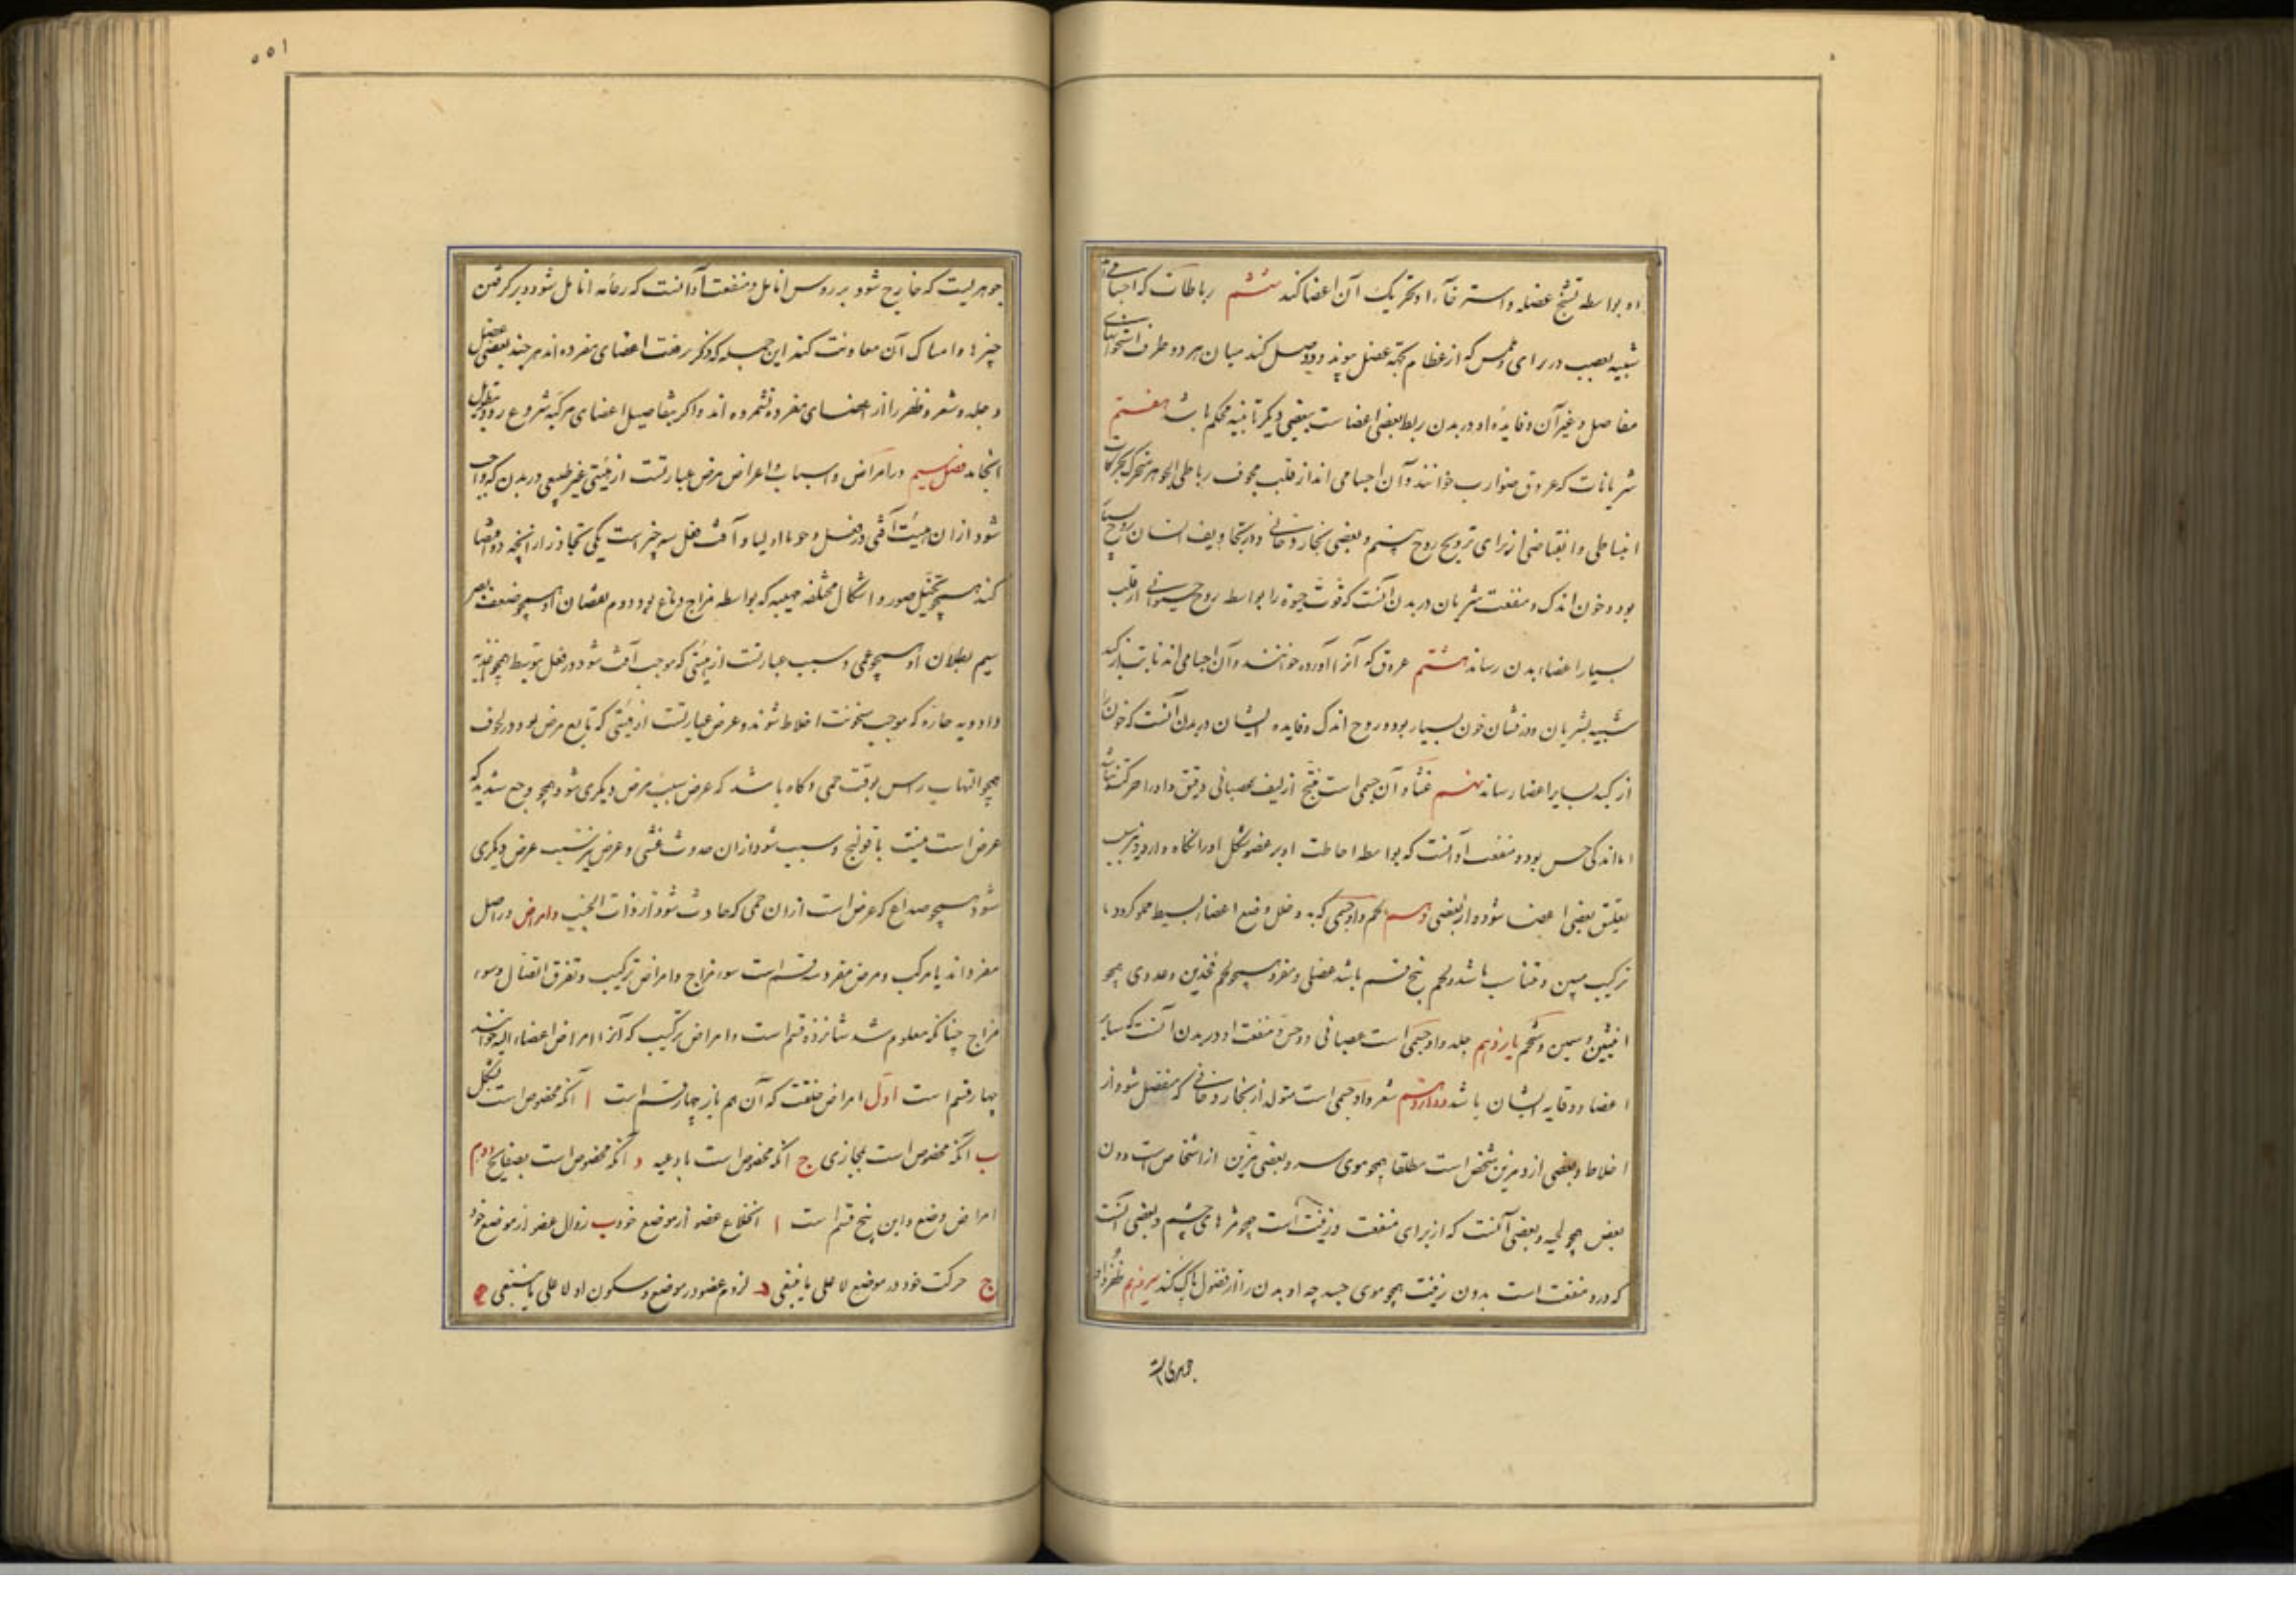 او بواسطه تشنج عضله و استرخآء او تحریک آن اعضا کند ششم رباطات که اجسامی اند
شبیه بعصب در مرای و لمس که از عظام بجهة عضل پیوندد و وصل کند میان هر دو طرف استخوانهای
مفاصل و غیر آن و فایده او در بدن ربط بعضی اعضاست ببعضی دیگر تا بنیه محکم باشد هفتم
شریانات که عروق ضوارب خوانند و آن اجسامی اند از قلب مجوف رباطی الجوهر متحرک بحرکات
انبساطی و انقباضی از برای ترویح روح و نفض بخار دخانی و در تجاویف ایشان روح بسیار
بود و خون اندک و منفعت شریان در بدن آنست که قوت حیوة را بواسطه روح حیوانی از قلب
بسایر اعضاء بدن رساند هشتم عروق که آنرا آورده خوانند و آن اجسامی اند نابت از کبد
شبیه بشریان و درایشان خون بسیار بود و روح اندک و فایده ایشان در بدن آنست که خون را
از کبد بسایر اعضا رساند نهم غشا و آن جسمی است منتسج از لیف عصبانی رقیق و او را حرکت نباشد
اما اندکی حس بود و منفعت او آنست که بواسطه احاطت او بر عضو شکل او را نگاه دارد و نیز سبب
تعلیق بعضی اعضا شود از بعضی دهم لحم و او جسمی که به و خلل وضع اعضاء بسیط مملو گردد تا
ترکیب مبین و متناسب باشد و لحم پنج قسم باشد عضلی و مفرد همچو لحم فخذین و غددی همچو
انثیین و سمین و شحم یازدهم جلد و او جسمی است عصبانی و حس و منفعت او در بدن آنست که سایر
اعضا و وقایه ایشان باشد دوازدهم شعر و او جسمی است متولد از بخار دخانی که منفصل شود از
اخلاط و بعضی ازو مزین شخص است مطلقا همچو موی سر و بعضی مزین از اشخاص است دون
بعض همچو لحیه و بعضی آنست که از برای منفعت و زینت است همچو مژهای چشم و بعضی آنست
که درو منفعت است بدون زینت همچو موی جسد چه او بدن را از فضول پاک کند سیزدهم ظفر و او
جوهریست
۵۵۱
جوهریست که خارج شود بر رؤس انامل و منفعت او آنست که دعامه انامل شود و در گرفتن
چیزها و امساک آن معاونت کند این جمله که ذکر رفت اعضای مفرده اند هر چند بعضی عضل
و جلد و شعر و ظفر را از اعضای مفرده نشمرده اند و اگر بتفاصیل اعضای مرکبه شروع رود بتطویل
انجامد فصل سیم در امراض و اسباب و اعراض مرض عبارتست از هیئتی غیر طبیعی در بدن که واجب
شود از ان هیئت آفتی در فعل وجوبا اولیا و آفت فعل سه چیز است یکی تجاوز از آنچه اقتضا
کند همچو تخیل صور و اشکال مختلفه مهیبه که بواسطه مزاج دماغ بود دوم نقصان او همچو ضعف بصر
سیم بطلان او همچو عمی و سبب عبارتست از هیئتی که موجب آفت شود در فعل بتوسط همچو اغذیه
و ادویه حاره که موجب سخونت اخلاط شوند و عرض عبارتست از هیئتی که تابع مرض بود در لحوق
همچو التهاب راس بوقت حمی و گاه باشد که عرض سبب مرض دیگری شود همچو وجع شدید که
عرض است نسبت با قولنج و سبب شود از ان حدوث غشی و عرض نیز سبب عرض دیگری
شود همچو صداع که عرض است از ان حمی که حادث شود از ذات الجنب و امراض در اصل
مفرد اند یا مرکب و مرض مفرد سه قسم است سوء مزاج و امراض ترکیب و تفرق اتصال و سوء
مزاج چنانکه معلوم شد شانزده قسم است و امراض ترکیب که آنرا امراض اعضاء الیه خوانند
چهار قسم است اول امراض خلقت که آن هم باز چهار قسم است ا آنکه مخصوص است بشکل
ب آنکه مخصوص است بمجاری ج آنکه مخصوص است باوعیه د آنکه مخصوص است بصفایح دوم
امراض وضع و این پنج قسم است ا انخلاع عضو از موضع خود ب زوال عضو از موضع خود
ج حرکت خود در موضع لا علی ما ینبغی د لزوم عضو در موضع و سکون او لا علی ما ینبغی ه